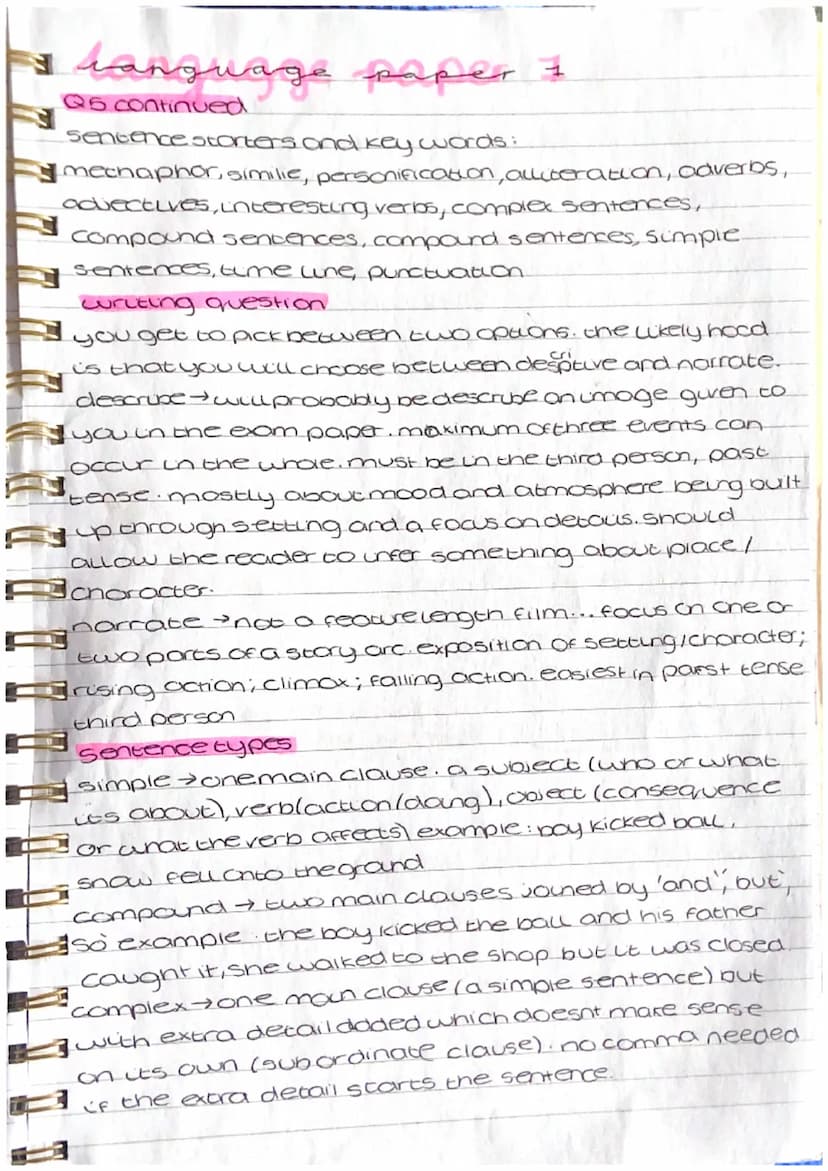 language paper 1
Q5 continued
sentence starters and key words:
metnaphor, similie, personification, alliteration, adverbs,
adjectives, interesting verbs, complex sentences,
compound sentences, compound sentences, simple
sentences, time line, punctuation
writing question
you get to pick between two options. the likely hood
is that you will choose between descriptive and narrate.
describe → will probably be describe an image given to
you in the exam paper. maximum of three events can
occur in the whole. must be in the third person, past
tense. mostly about mood and atmosphere being built
up through setting and a focus on details. should
allow the reader to infer something about place /
character.
narrate → not a feature length film... focus on one or
two parts of a story arc. exposition of setting/character;
rising action; climax; falling action. easiest in past tense
third person
sentence types
simple → one main clause. a subject (who or what
its about), verb (action/doing), object (consequence
or what the verb affects) example: boy kicked ball,
snow fell onto the grand
compound → two main clauses joined by 'and', 'but',
'so' example: the boy kicked the ball and his father
caught it, she walked to the shop but it was closed
complex → one main clause (a simple sentence) but
with extra detail dded which doesnt make sense
on its own (subordinate clause). no comma needed
if the extra detail starts the sentence.